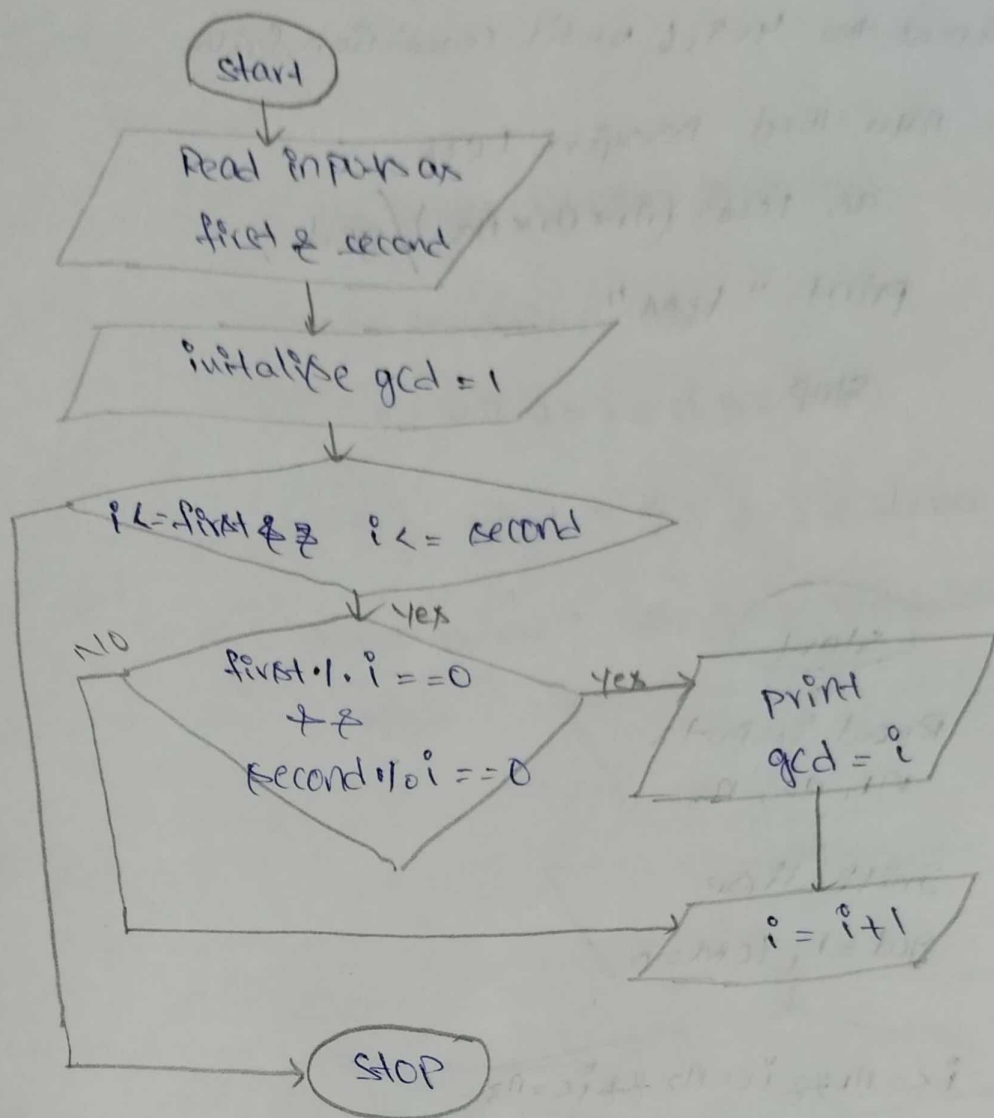 start
Read inputs as
first & second
initalise gcd = 1
i<=first && i<= second
yes
NO
first % i ==0
&&
second % i ==0
yes
print
gcd = i
i = i+1
STOP